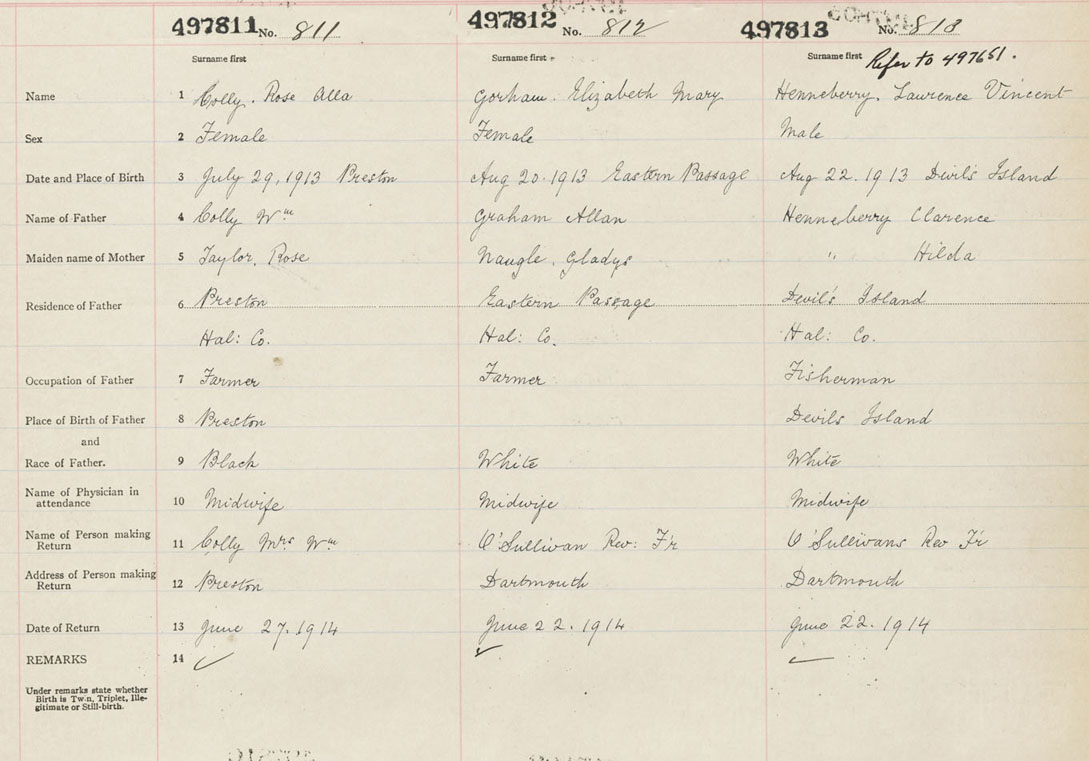 497811 No. 811 497812 No. 812 497813 No. 813
Surname first Surname first Surname first Refer to 497651.
Name 1 Colly. Rose Alla Gorham. Elizabeth Mary Henneberry. Lawrence Vincent
Sex 2 Female Female Male
Date and Place of Birth 3 July 29, 1913 Preston Aug 20. 1913 Eastern Passage Aug 22. 1913 Devil's Island
Name of Father 4 Colly Wm Graham Allan Henneberry Clarence
Maiden name of Mother 5 Taylor, Rose Naugle. Gladys " Hilda
Residence of Father 6 Preston Eastern Passage Devil's Island
Hal: Co. Hal: Co. Hal: Co.
Occupation of Father 7 Farmer Farmer Fisherman
Place of Birth of Father 8 Preston Devils Island
and
Race of Father. 9 Black White White
Name of Physician in attendance 10 Midwife Midwife Midwife
Name of Person making Return 11 Colly Mrs Wm O'Sullivan Rev: Fr O'Sullivans Rev Fr
Address of Person making Return 12 Preston Dartmouth Dartmouth
Date of Return 13 June 27. 1914 June 22. 1914 June 22. 1914
REMARKS 14
Under remarks state whether
Birth is Twin, Triplet, Ille-
gitimate or Still-birth.